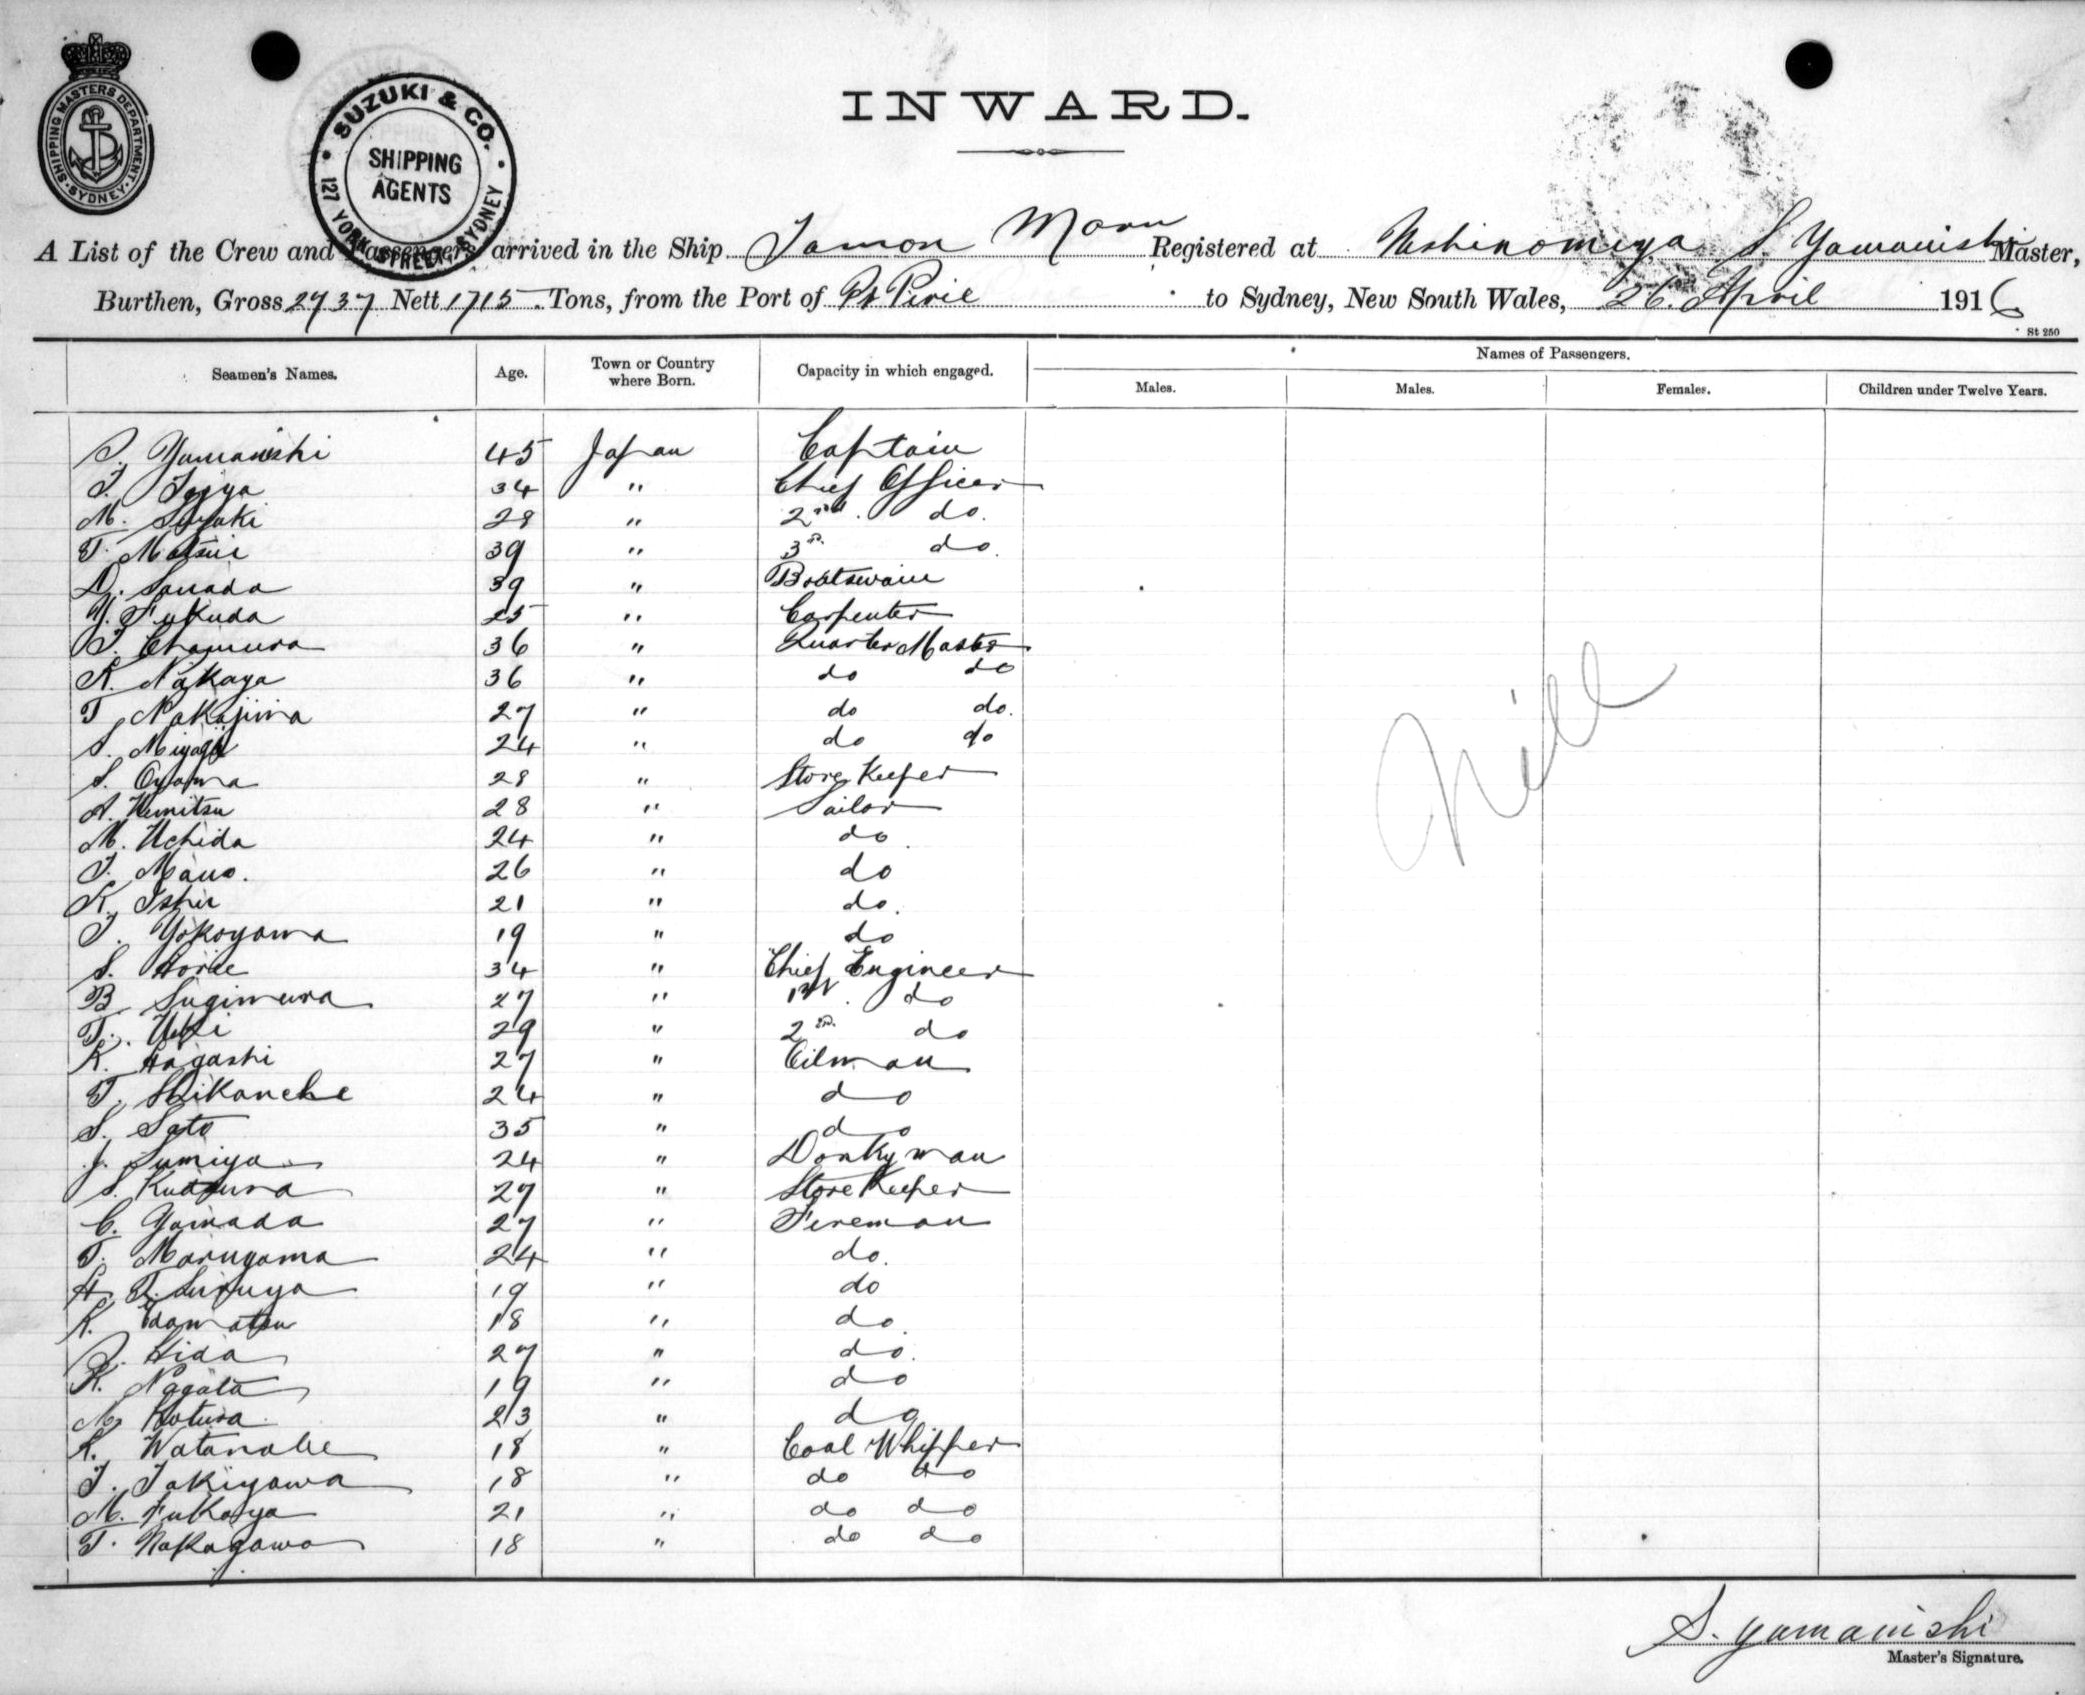 SHIPPING MASTERS DEPARTMENT
SYDNEY
SUZUKI & CO.
SHIPPING AGENTS
127 YORK STREET, SYDNEY
INWARD.
A List of the Crew and Passengers arrived in the Ship Tamon Maru Registered at Nishinomiya S. Yamanishi Master,
Burthen, Gross 2737 Nett 1715 Tons, from the Port of Pt Pirie to Sydney, New South Wales, 26 April 1916
St 250
Seamen's Names. Age. Town or Country where Born. Capacity in which engaged. Names of Passengers.
Males. Males. Females. Children under Twelve Years.
S. Yamanishi 45 Japan Captain
T. Tojya 34 " Chief Officer
M. Suzuki 28 " 2nd. do.
T. Matsui 39 " 3rd. do.
D. Sanada 39 " Boatswain
Y. Fukuda 25 " Carpenter
T. Chamura 36 " Quarter Master
K. Nakaya 36 " do do
T Nakajima 27 " do do.
S. Miyagi 24 " do do
S. Oyama 28 " Store Keeper
A. Uemitsu 28 " Sailor
M. Uchida 24 " do.
T. Mano. 26 " do
K. Ishii 21 " do.
T. Yokoyama 19 " do
S. Horie 34 " Chief Engineer
B Sugimura 27 " 1st. do
T. Ueki 29 " 2nd. do
K. Hagashi 27 " Oilman
T. Shikanche 24 " do
S. Sato 35 " do
J. Sumiya 24 " Donkyman
S. 27 " Store Keeper
C. Yamada 27 " Fireman
T. Maruyama 24 " do.
H. T. Suruya 19 " do
K. Edamatsu 18 " do.
S. Hida 27 " do.
K. Nagata 19 " do
M. Kotura 23 " do
K. Watanabe 18 " Coal Whipper
T. Takiyawa 18 " do do
M. Fukaya 21 " do do
T. Nakagawa 18 " do do
Nill
S. Yamanishi
Master's Signature.